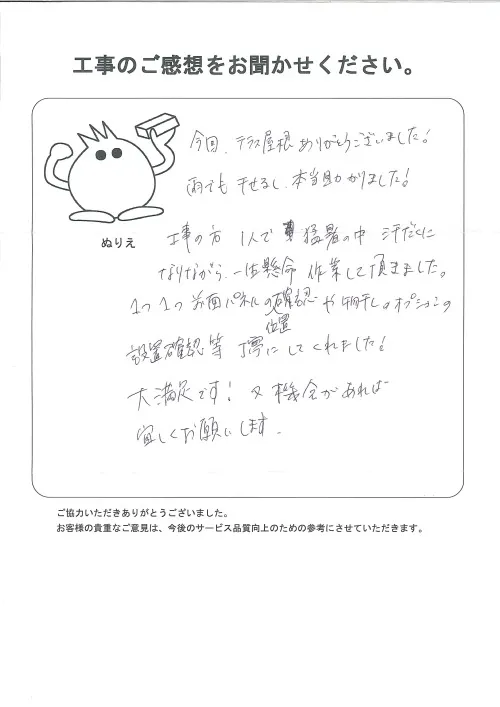 工事のご感想をお聞かせください。
今回、テラス屋根ありがとうございました!
雨でも干せるし、本当助かりました!
ぬりえ
工事の方 1人で 猛暑の中 汗だくに
なりながら、一生懸命 作業して頂きました。
1つ1つ 前面パネルの確認や物干しのオプションの
位置
設置確認等 丁寧にしてくれました!
大満足です! 又機会があれば
宜しくお願いします.
ご協力いただきありがとうございました。
お客様の貴重なご意見は、今後のサービス品質向上のための参考にさせていただきます。